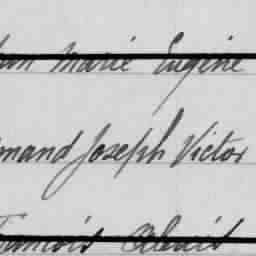 Marie Eugène
mand Joseph Victor
François Alexis